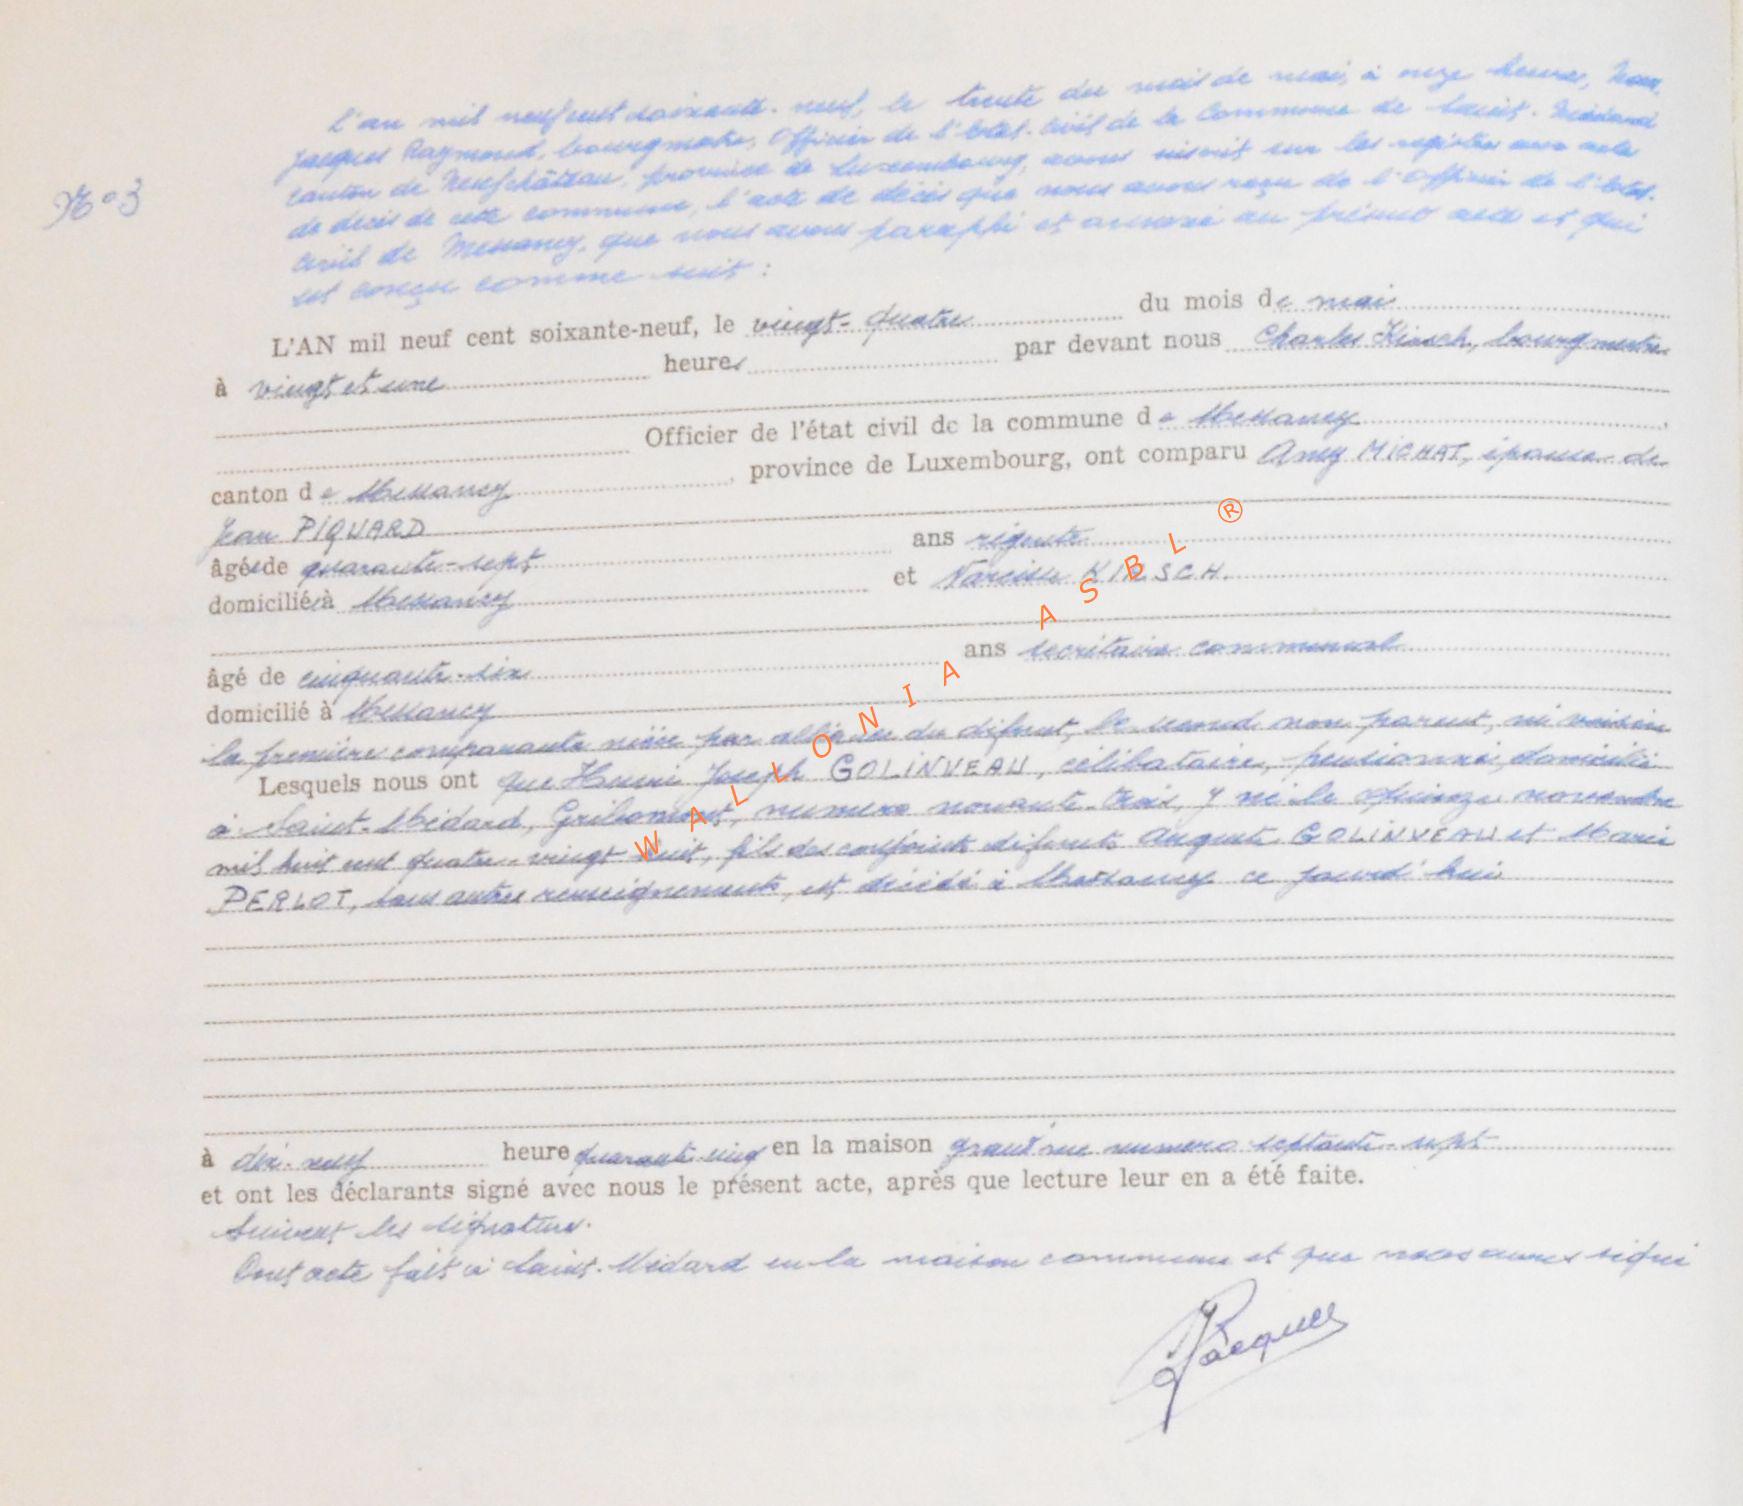 N° 3
L'an mil neuf cent soixante-neuf, le trente du mois de mai, à onze heures, Nous,
Jacques Raymond, bourgmestre, Officier de l'Etat-Civil de la Commune de Saint-Médard
canton de Neufchâteau, province de Luxembourg, avons inscrit sur les registres aux actes
de décès de cette commune, l'acte de décès que nous avons reçu de l'Officier de l'Etat-
Civil de Messancy, que nous avons paraphé et annexé au présent acte et qui
est conçu comme suit :
L'AN mil neuf cent soixante-neuf, le vingt-quatre du mois de mai
à vingt et une heures par devant nous Charles Kirsch, bourgmestre
Officier de l'état civil de la commune de Messancy,
canton de Messancy, province de Luxembourg, ont comparu Amy MICHAT, épouse de
Jean PIQUARD
âgée de quarante-sept ans régente
domiciliée à Messancy et Narcisse KIRSCH.
âgé de cinquante-six ans secrétaire communal
domicilié à Messancy
la première comparante nièce par alliance du défunt, le second non parent, ni voisin
Lesquels nous ont que Henri Joseph GOLINVEAU, célibataire, pensionné, domicilié
à Saint-Médard, Gribomont, numéro nonante-trois, y né le quinze novembre
mil huit cent quatre-vingt huit, fils des conjoints défunts Auguste GOLINVEAU et Marie
PERLOT, sans autres renseignements, est décédé à Messancy ce jourd'hui
à dix-neuf heure quarante cinq en la maison grand'rue numéro septante-sept
et ont les déclarants signé avec nous le présent acte, après que lecture leur en a été faite.
Suivent les signatures.
Dont acte fait à Saint-Médard en la maison commune et que nous avons signé
Jacques
WALLONIA ASBL ®